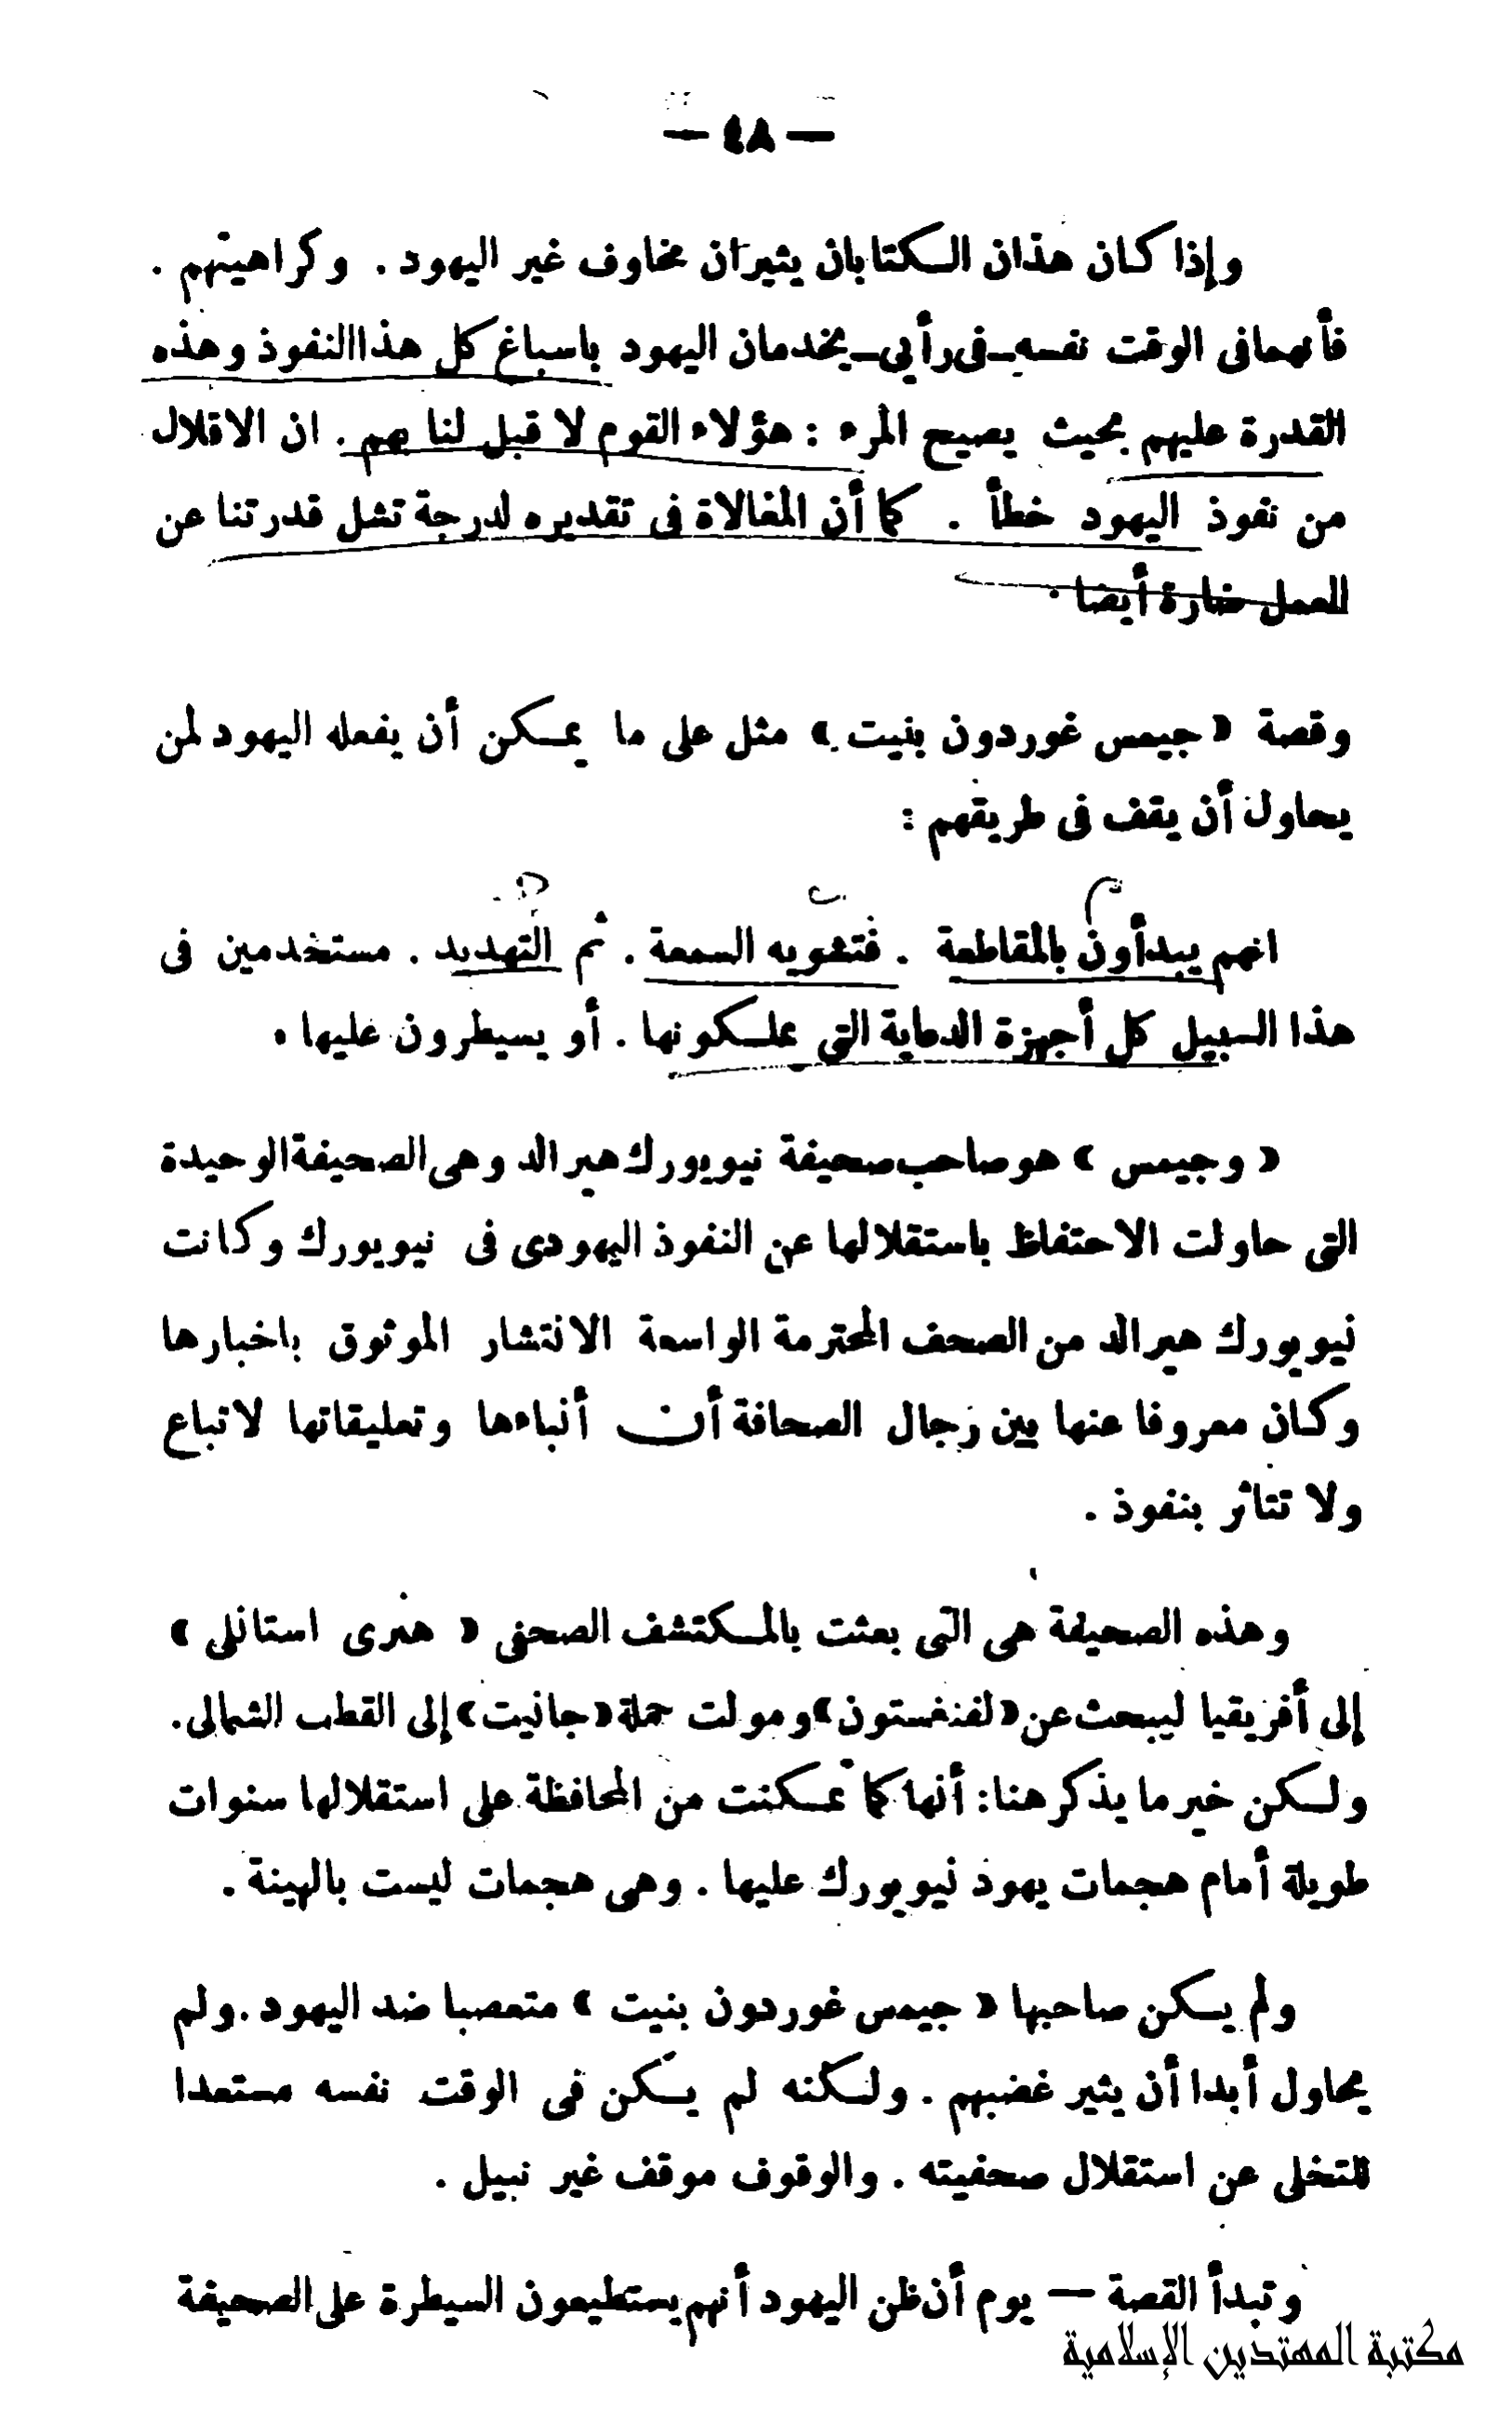 — ٤٨ —
وإذا كان هذان الكتابان يثيران مخاوف غير اليهود . وكراهيتهم .
فأنهما فى الوقت نفسه ــ فى رأيى ــ يخدمان اليهود باسباغ كل هذا النفوذ وهذه
القدرة عليهم بحيث يصيح المرء : هؤلاء القوم لا قبل لنا بهم . ان الاقلال
من نفوذ اليهود خطأ . كما أن المغالاة فى تقديره لدرجة تشل قدرتنا عن
العمل ضارة أيضا .
وقصة « جيمس غوردون بنيت » مثل على ما يمكن أن يفعله اليهود لمن
يحاول أن يقف فى طريقهم :
انهم يبدأون بالمقاطعة . فتشويه السمعة . ثم التهديد . مستخدمين فى
هذا السبيل كل أجهزة الدعاية التى يملكونها . أو يسيطرون عليها .
« وجيمس » هو صاحب صحيفة نيويورك هيرالد وهى الصحيفة الوحيدة
التى حاولت الاحتفاظ باستقلالها عن النفوذ اليهودى فى نيويورك وكانت
نيويورك هيرالد من الصحف المحترمة الواسعة الانتشار الموثوق باخبارها
وكان معروفا عنها بين رجال الصحافة أن أنباءها وتعليقاتها لا تباع
ولا تتاثر بنفوذ .
وهذه الصحيفة هى التى بعثت بالمكتشف الصحفى « هنرى استانلى »
إلى أفريقيا ليبحث عن « لفنغستون » ومولت حملة « جانيت » إلى القطب الشمالى .
ولكن خير ما يذكر هنا : أنها كما تمكنت من المحافظة على استقلالها سنوات
طويلة أمام هجمات يهود نيويورك عليها . وهى هجمات ليست بالهينة .
ولم يكن صاحبها « جيمس غوردون بنيت » متعصبا ضد اليهود . ولم
يحاول أبدا أن يثير غضبهم . ولكنه لم يكن فى الوقت نفسه مستعدا
للتخلى عن استقلال صحفيته . والوقوف موقف غير نبيل .
وتبدأ القصة — يوم أن ظن اليهود أنهم يستطيعون السيطرة على الصحيفة
مكتبة المهتدين الإسلامية